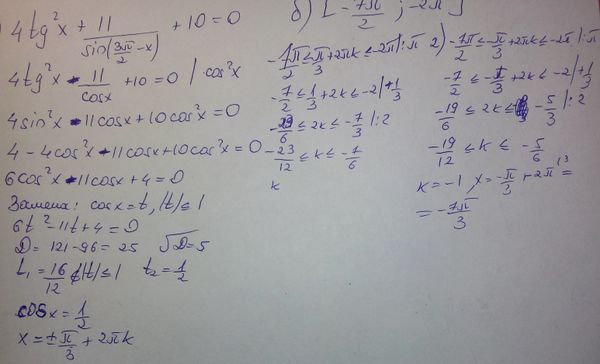 4tg²x + 11/sin(3π/2 - x) + 10 = 0
4tg²x - 11/cosx + 10 = 0 | cos²x
4sin²x - 11cosx + 10cos²x = 0
4 - 4cos²x - 11cosx + 10cos²x = 0
6cos²x - 11cosx + 4 = 0
Замена: cosx = t, |t| ≤ 1
6t² - 11t + 4 = 0
D = 121 - 96 = 25 √D = 5
t₁ = 16/12 ∉ |t| ≤ 1 t₂ = 1/2
cosx = 1/2
x = ±π/3 + 2πk
б) [-7π/2 ; -2π]
-7π/2 ≤ π/3 + 2πk ≤ -2π |:π
-7/2 ≤ 1/3 + 2k ≤ -2 | + 1/3
-23/6 ≤ 2k ≤ -7/3 |:2
-23/12 ≤ k ≤ -7/6
k
2) -7π/2 ≤ -π/3 + 2πk ≤ -2π |:π
-7/2 ≤ -1/3 + 2k ≤ -2 | + 1/3
-19/6 ≤ 2k ≤ -5/3 |:2
-19/12 ≤ k ≤ -5/6
k = -1, x = -π/3 + 2π =
= -7π/3